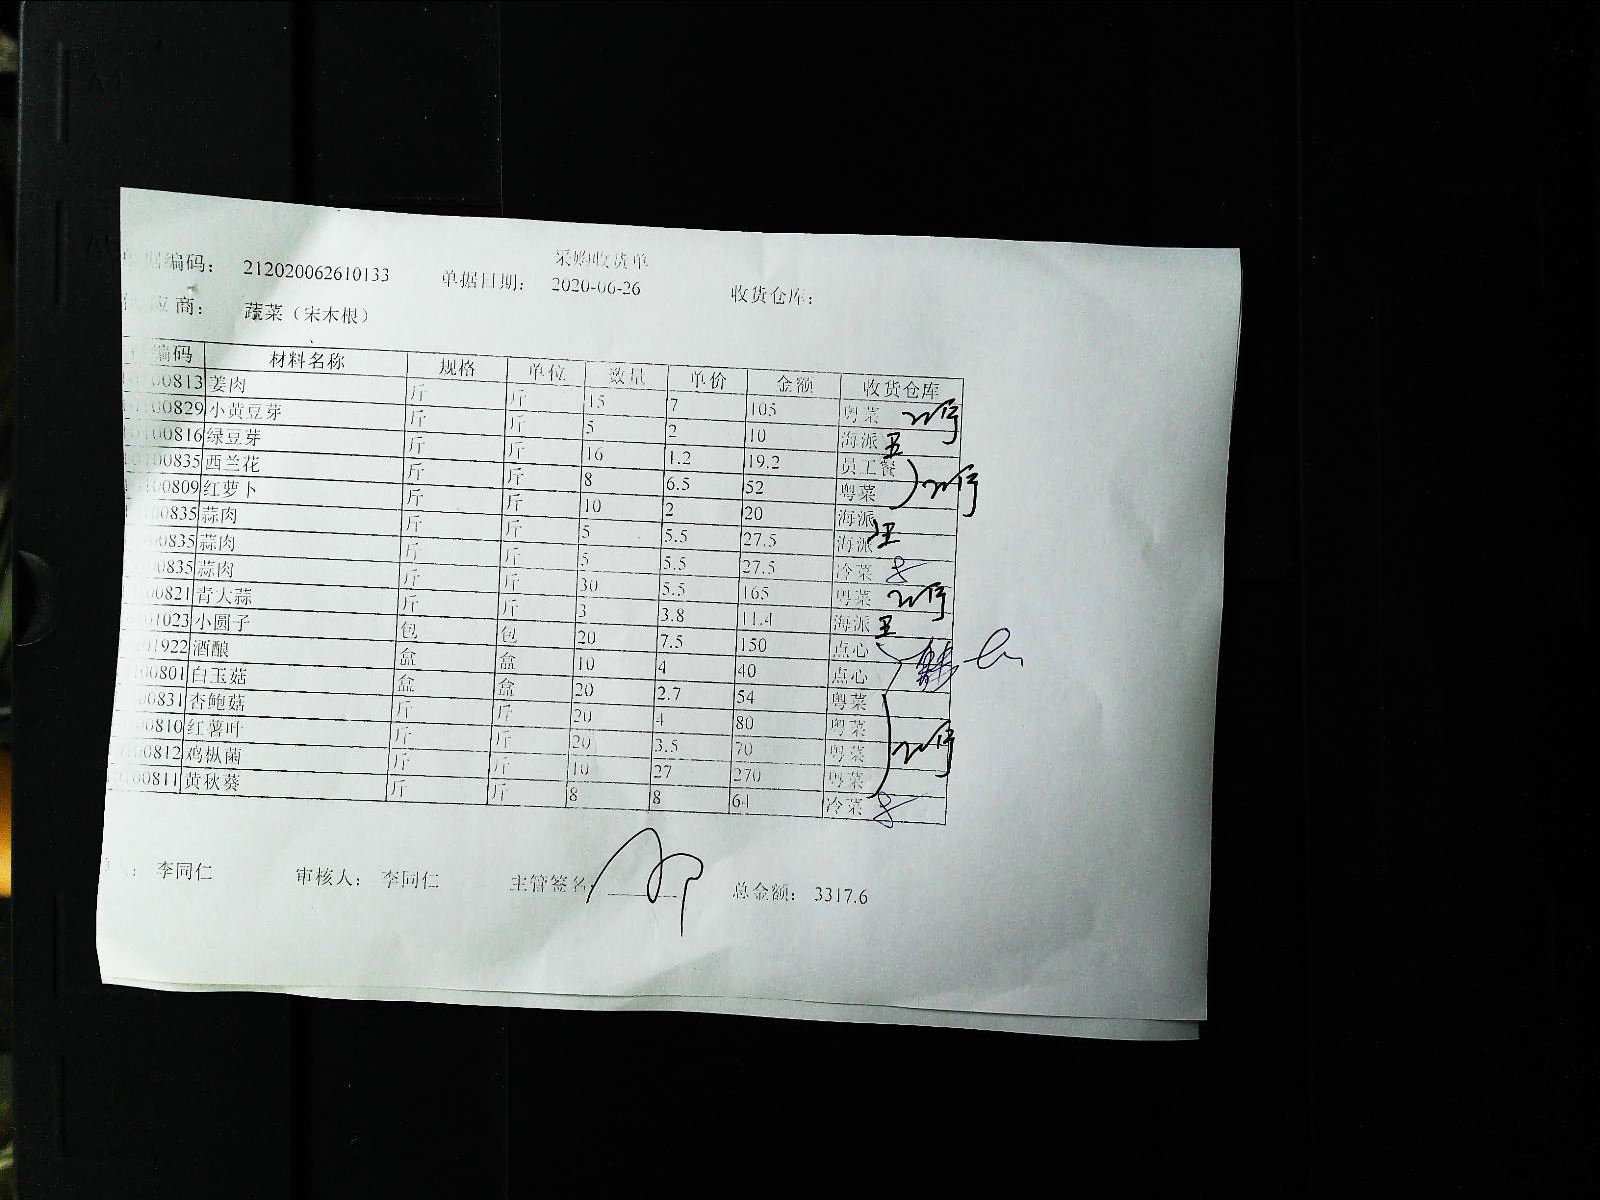 采购收货单
据编码： 212020062610133 单据日期： 2020-06-26 收货仓库：
应商： 蔬菜（宋木根）
编码 材料名称 规格 单位 数量 单价 金额 收货仓库
00813 姜肉 斤 斤 15 7 105 粤菜
00829 小黄豆芽 斤 斤 5 2 10 海派
00816 绿豆芽 斤 斤 16 1.2 19.2 员工餐
00835 西兰花 斤 斤 8 6.5 52 粤菜
00809 红萝卜 斤 斤 10 2 20 海派
00835 蒜肉 斤 斤 5 5.5 27.5 海派
00835 蒜肉 斤 斤 5 5.5 27.5 冷菜
00835 蒜肉 斤 斤 30 5.5 165 粤菜
00821 青大蒜 斤 斤 3 3.8 11.4 海派
01023 小圆子 包 包 20 7.5 150 点心
01922 酒酿 盒 盒 10 4 40 点心
00801 白玉菇 盒 盒 20 2.7 54 粤菜
00831 杏鲍菇 斤 斤 20 4 80 粤菜
00810 红薯叶 斤 斤 20 3.5 70 粤菜
00812 鸡枞菌 斤 斤 10 27 270 粤菜
00811 黄秋葵 斤 斤 8 8 64 冷菜
李同仁 审核人： 李同仁 主管签名： 总金额： 3317.6